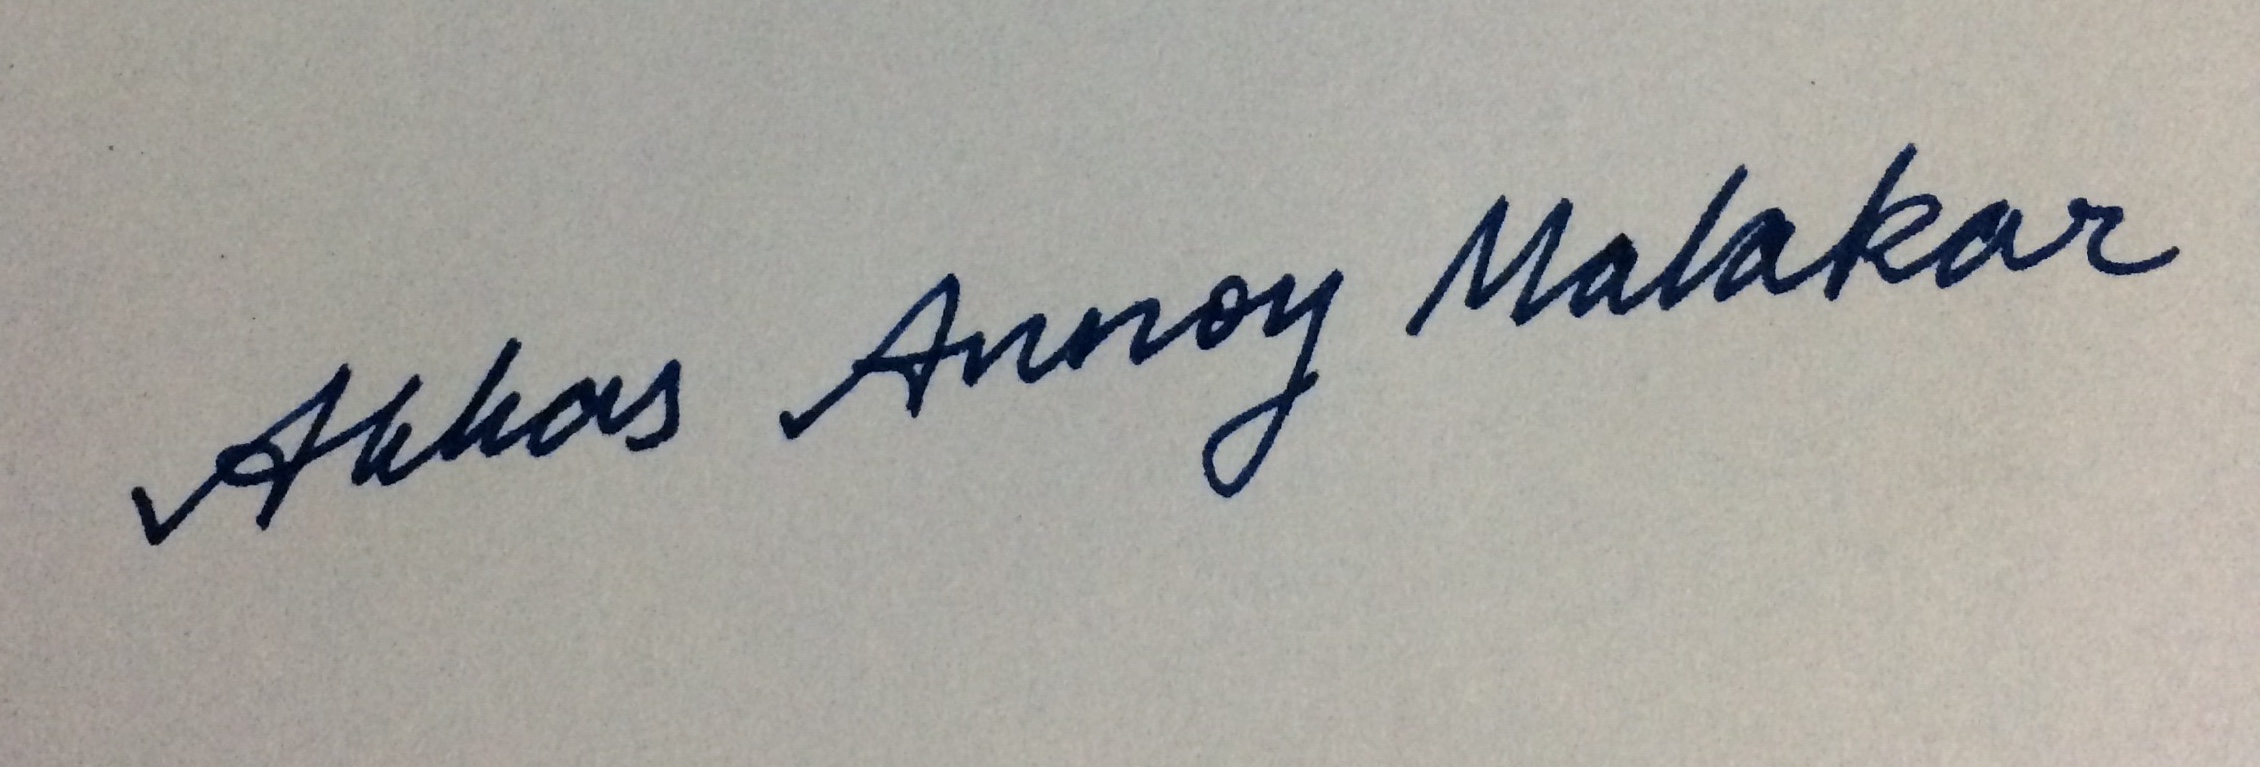 Akhas Annoy Malakar